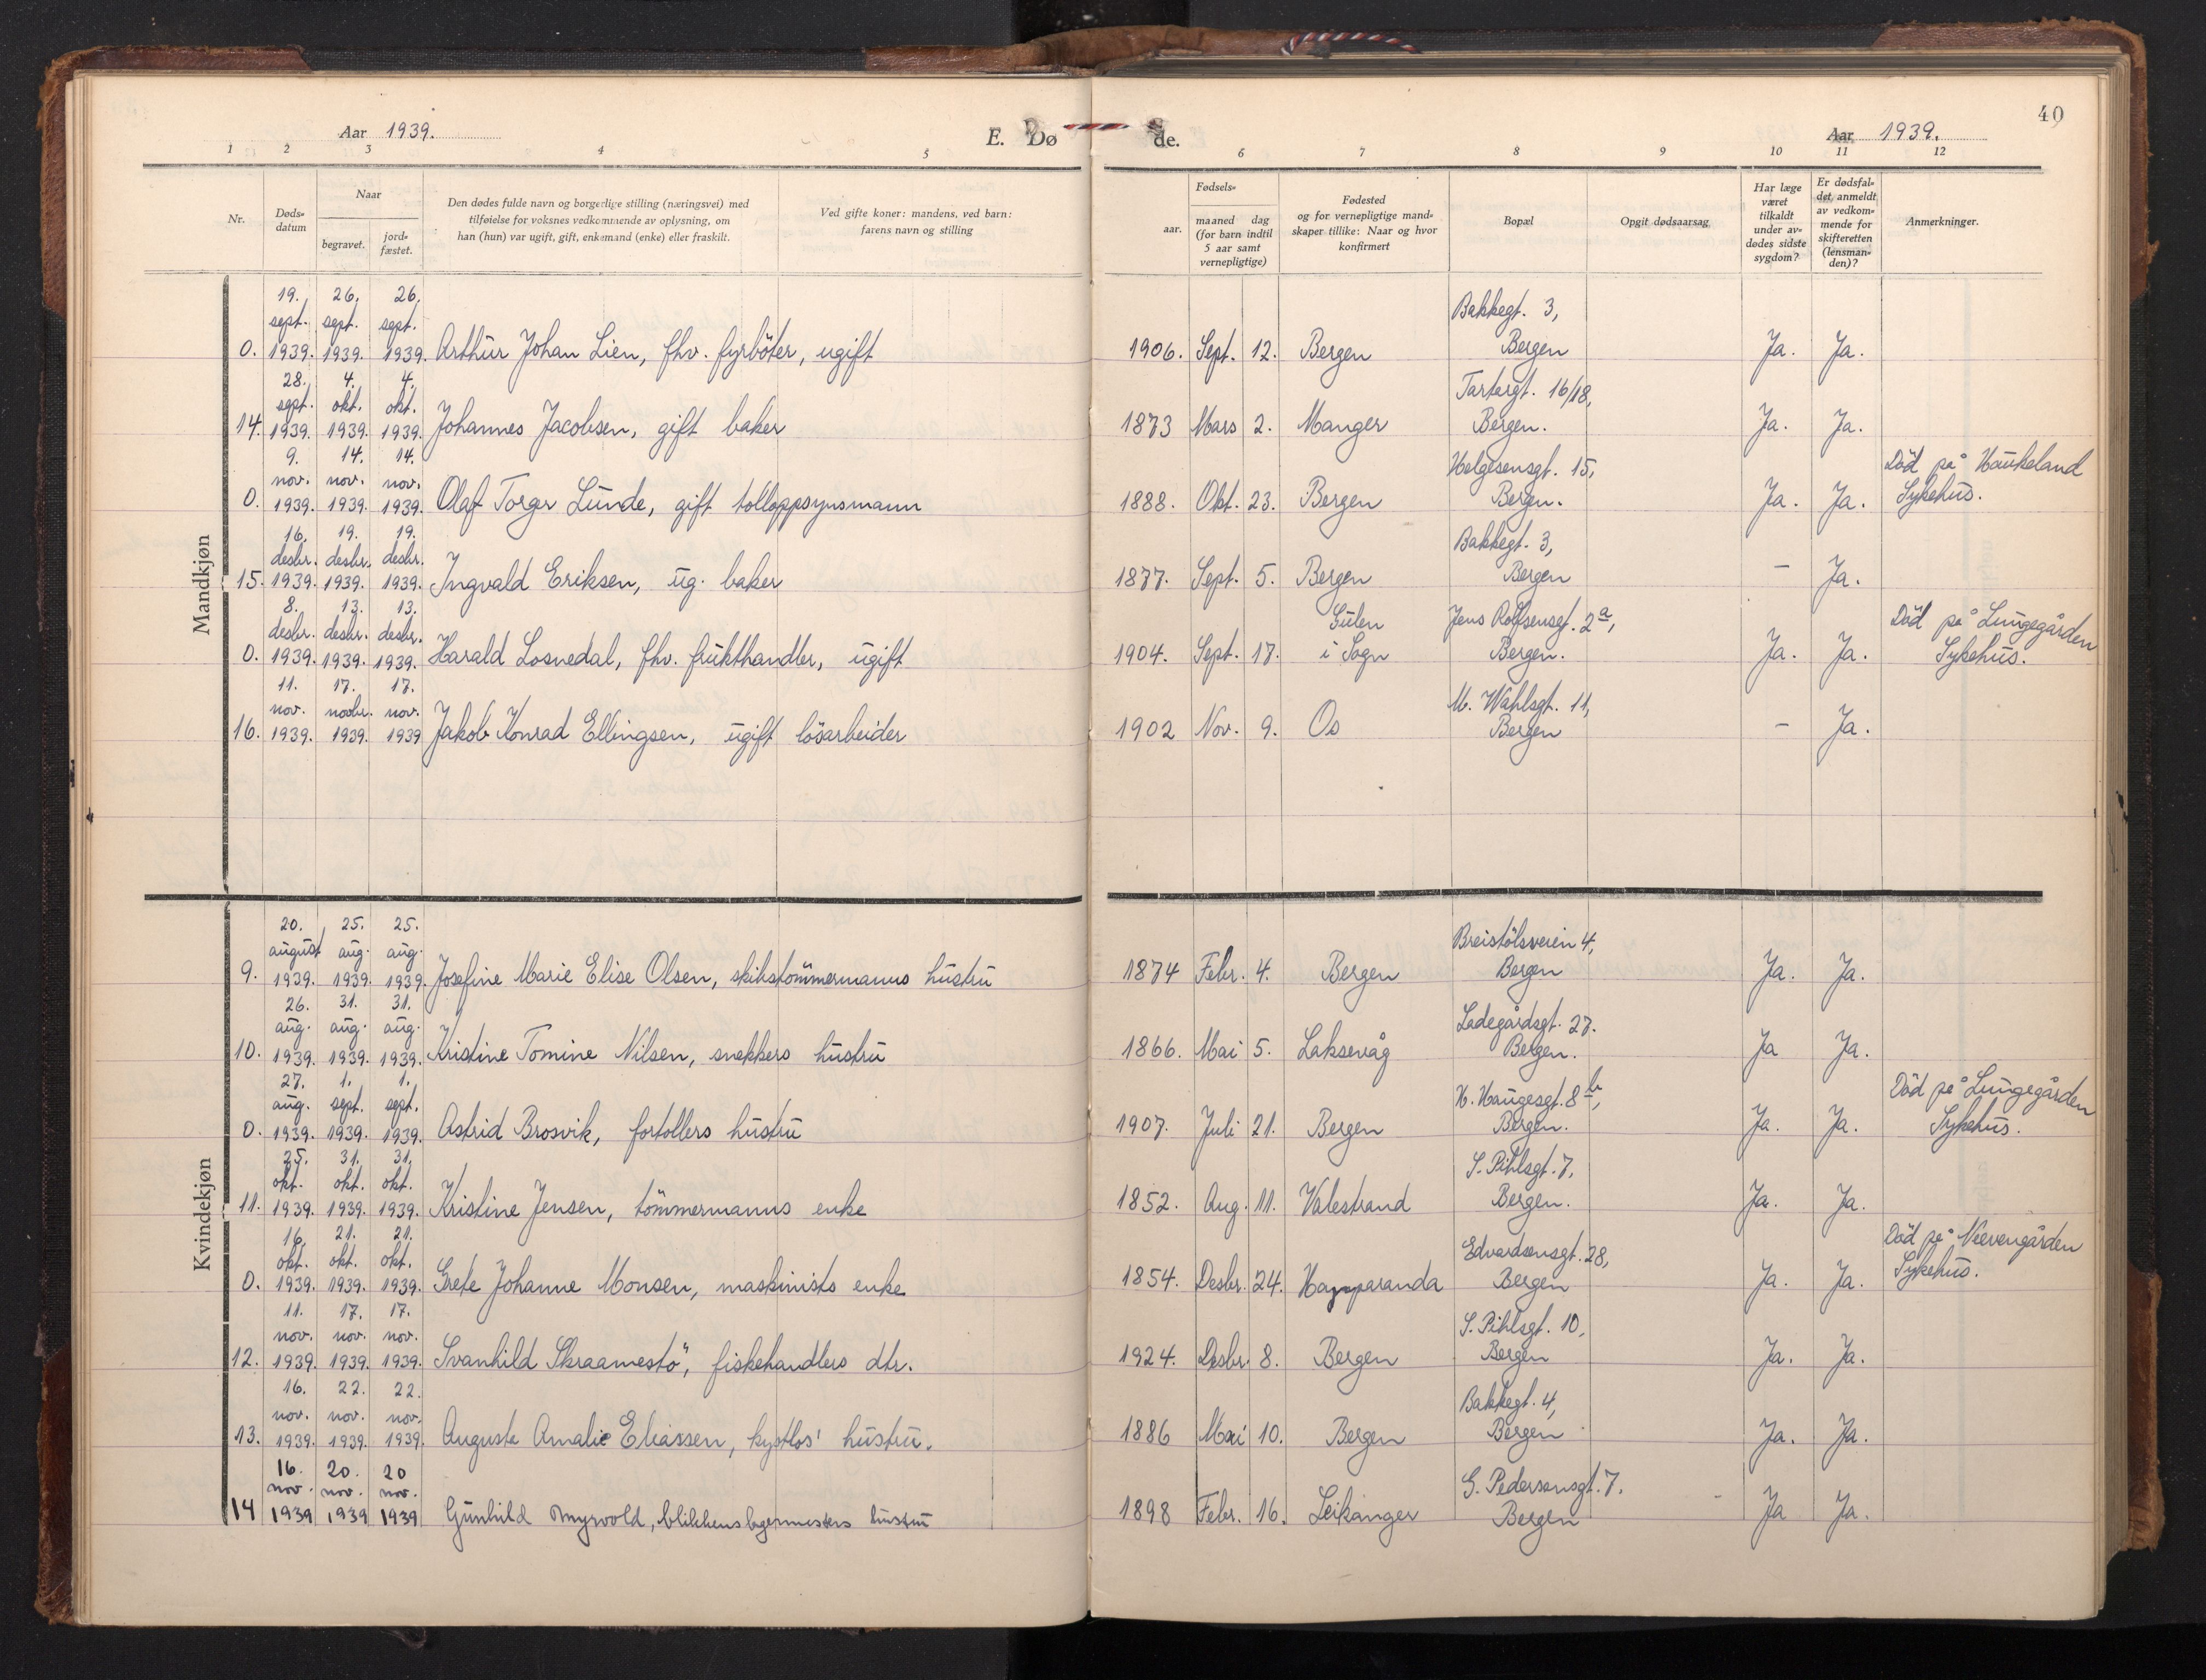 40
Aar 1939.
E. Dø
de.
Aar 1939.
1 2 3 4 5 6 7 8 9 10 11 12
Nr.
Døds=
datum
Naar
begravet.
jord=
fæstet.
Den dødes fulde navn og borgerlige stilling (næringsvei) med
tilføielse for voksnes vedkommende av oplysning, om
han (hun) var ugift, gift, enkemand (enke) eller fraskilt.
Ved gifte koner: mandens, ved barn:
farens navn og stilling
Fødsels=
aar.
maaned dag
(for barn indtil
5 aar samt
vernepligtige)
Fødested
og for vernepligtige mand=
skaper tillike: Naar og hvor
konfirmert
Bopæl
Opgit dødsaarsag
Har læge
været
tilkaldt
under av=
dødes sidste
sygdom?
Er dødsfal=
det anmeldt
av vedkom=
mende for
skifteretten
(lensman=
den)?
Anmerkninger.
Mandkjøn
19. 26. 26.
sept. sept. sept. Bakkegt. 3,
0. 1939. 1939. 1939. Arthur Johan Lien, fhv. fyrböter, ugift 1906. Sept. 12. Bergen Bergen Ja. Ja.
28. 4. 4.
sept. okt. okt. Tartargt. 16/18,
14. 1939. 1939. 1939. Johannes Jacobsen, gift baker 1873 Mars 2. Manger Bergen. Ja. Ja.
9. 14. 14.
nov. nov. nov. Helgesensgt. 15, Död på Haukeland
0. 1939. 1939. 1939. Olaf Torger Lunde, gift tolloppsynsmann 1888. Okt. 23. Bergen Bergen. Ja. Ja. Sykehus.
16. 19. 19.
desbr. desbr. desbr. Bakkegt. 3,
15. 1939. 1939. 1939. Ingvald Eriksen, ug. baker 1877. Sept. 5. Bergen Bergen – Ja.
8. 13. 13.
desbr. desbr. desbr. Gulen Jens Rolfsensgt. 2a, Död på Lungegården
0. 1939. 1939. 1939. Harald Losnedal, fhv. frukthandler, ugift 1904. Sept. 17. i Sogn Bergen. Ja. Ja. Sykehus.
11. 17. 17.
nov. novbr. nov. M. Wahlsgt. 11,
16. 1939. 1939. 1939 Jakob Konrad Ellingsen, ugift lösarbeider 1902 Nov. 9. Os Bergen – Ja.
Kvindekjøn
20. 25. 25.
august aug. aug. Breistölsveien 4,
9. 1939. 1939. 1939. Josefine Marie Elise Olsen, skibstömmermanns hustru 1874 Febr. 4. Bergen Bergen Ja. Ja.
26. 31. 31.
aug. aug. aug. Ladegårdsgt. 27.
10. 1939. 1939. 1939. Kristine Tomine Nilsen, snekkers hustru 1866. Mai 5. Laksevåg Bergen. Ja Ja.
27. 1. 1.
aug. sept. sept. H. Haugesgt. 8b, Död på Lungegården
0. 1939. 1939. 1939. Astrid Brosvik, fortollers hustru 1907. Juli 21. Bergen Bergen. Ja. Ja. Sykehus.
25. 31. 31.
okt. okt. okt. S. Pihlsgt. 7,
11. 1939. 1939. 1939. Kristine Jensen, tömmermanns enke 1852. Aug. 11. Valestrand Bergen. Ja. Ja.
16. 21. 21.
okt. okt. okt. Edvardsensgt. 28, Död på Neevengården
0. 1939. 1939. 1939. Grete Johanne Monsen, maskinists enke 1854. Desbr. 24. Happaranda Bergen Ja. Ja. Sykehus.
11. 17. 17.
nov. nov. nov. S. Pihlsgt. 10,
12. 1939. 1939. 1939. Svanhild Skraamestö, fiskehandlers dtr. 1924. Desbr. 8. Bergen Bergen Ja. Ja.
16. 22. 22.
nov. nov. nov. Bakkegt. 4,
13. 1939. 1939. 1939. Auguste Amalie Eliassen, kystlos' hustru. 1886 Mai 10. Bergen Bergen Ja. Ja.
16. 20. 20
nov. nov. nov. G. Pedersensgt. 7.
14 1939 1939 1939 Gunhild Myrvold, blikkenslagermesters hustru 1898 Febr. 16. Leikanger Bergen Ja Ja.